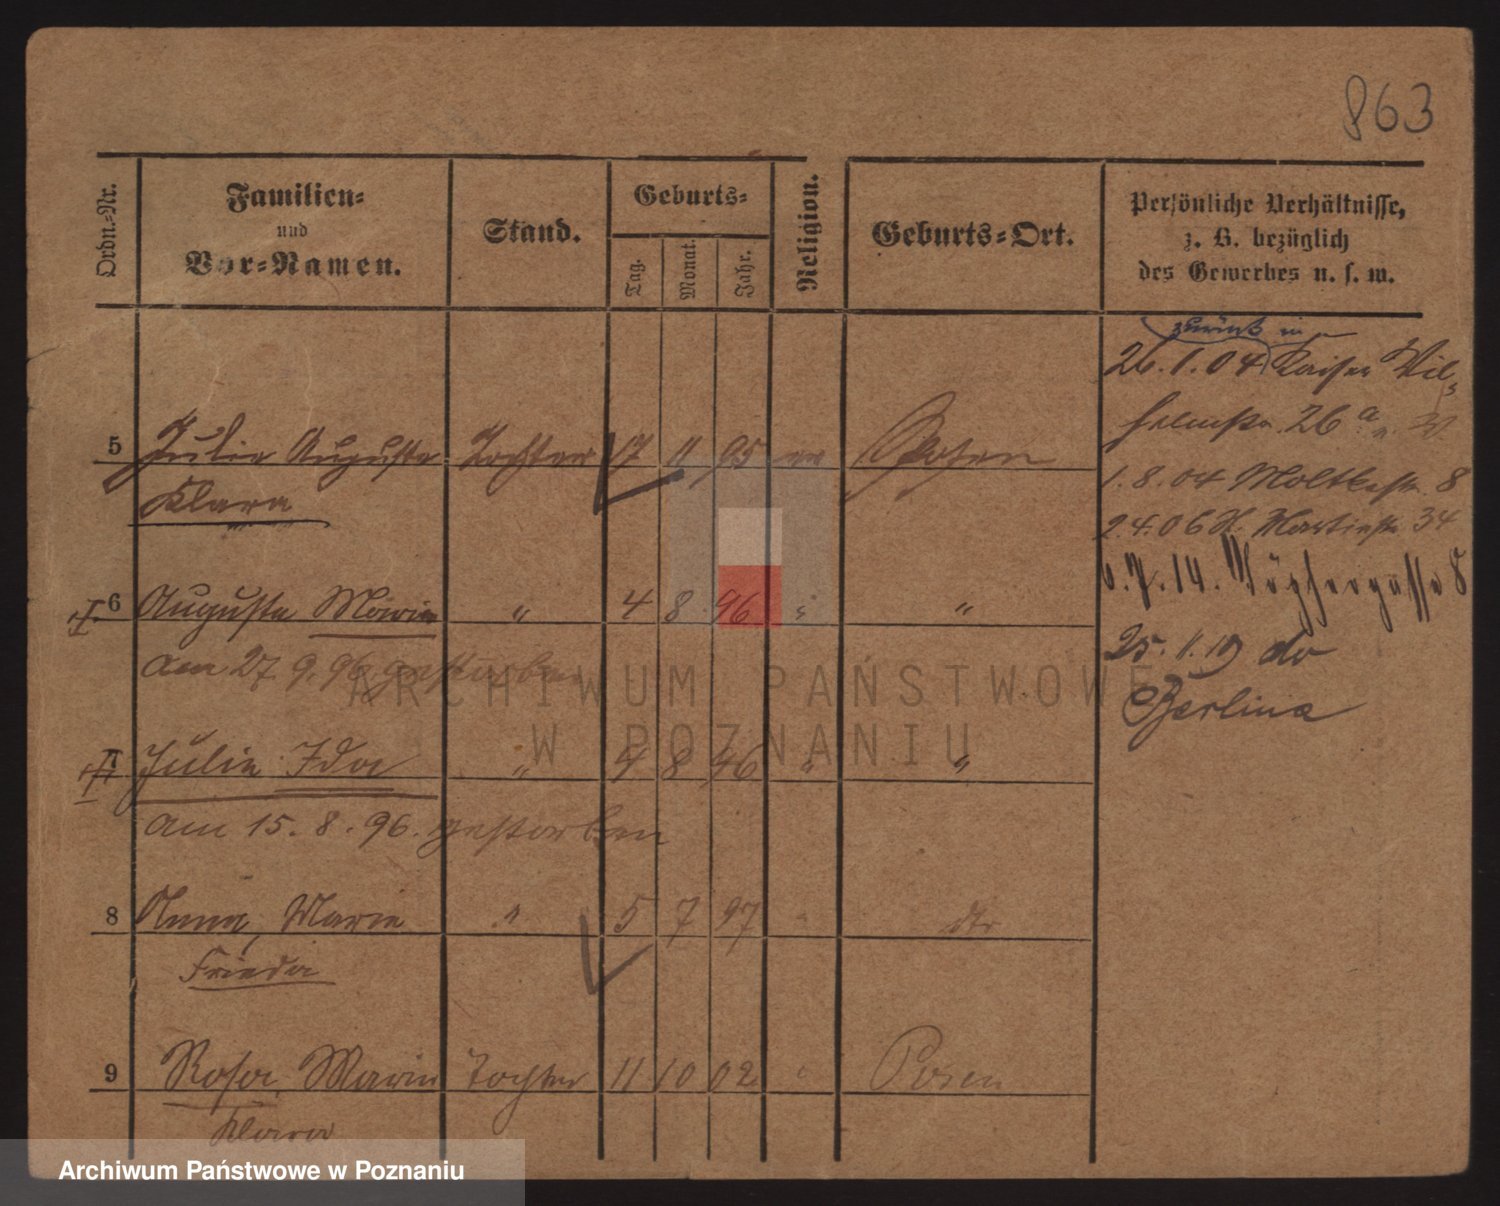 863
Ordn.-Nr.
Familien-
und
Vor-Namen.
Stand.
Geburts-
Tag.
Monat.
Jahr.
Religion.
Geburts-Ort.
Persönliche Verhältnisse,
z. B. bezüglich
des Gewerbes u. s. w.
zurück in
26.1.04 Kaiser Wil-
helmstr. 26a
5 Julie Auguste Tochter 17 11 95 ev Posen
Klara
1.8.04 Moltkestr. 8
2.4.06 St. Martinstr. 34
6 Auguste Marie " 4 8 96 " "
6.7.14. 8
am 27.9.96 gestorben
25.1.19 do
Berlina
7 Julie Ida " 4 8 96 " "
am 15.8.96. gestorben
8 Anna, Marie " 5 7 97 dto
Frieda
9 Rosa, Marie Tochter 11 10 02 " Posen
Klara
ARCHIWUM PAŃSTWOWE
W POZNANIU
Archiwum Państwowe w Poznaniu